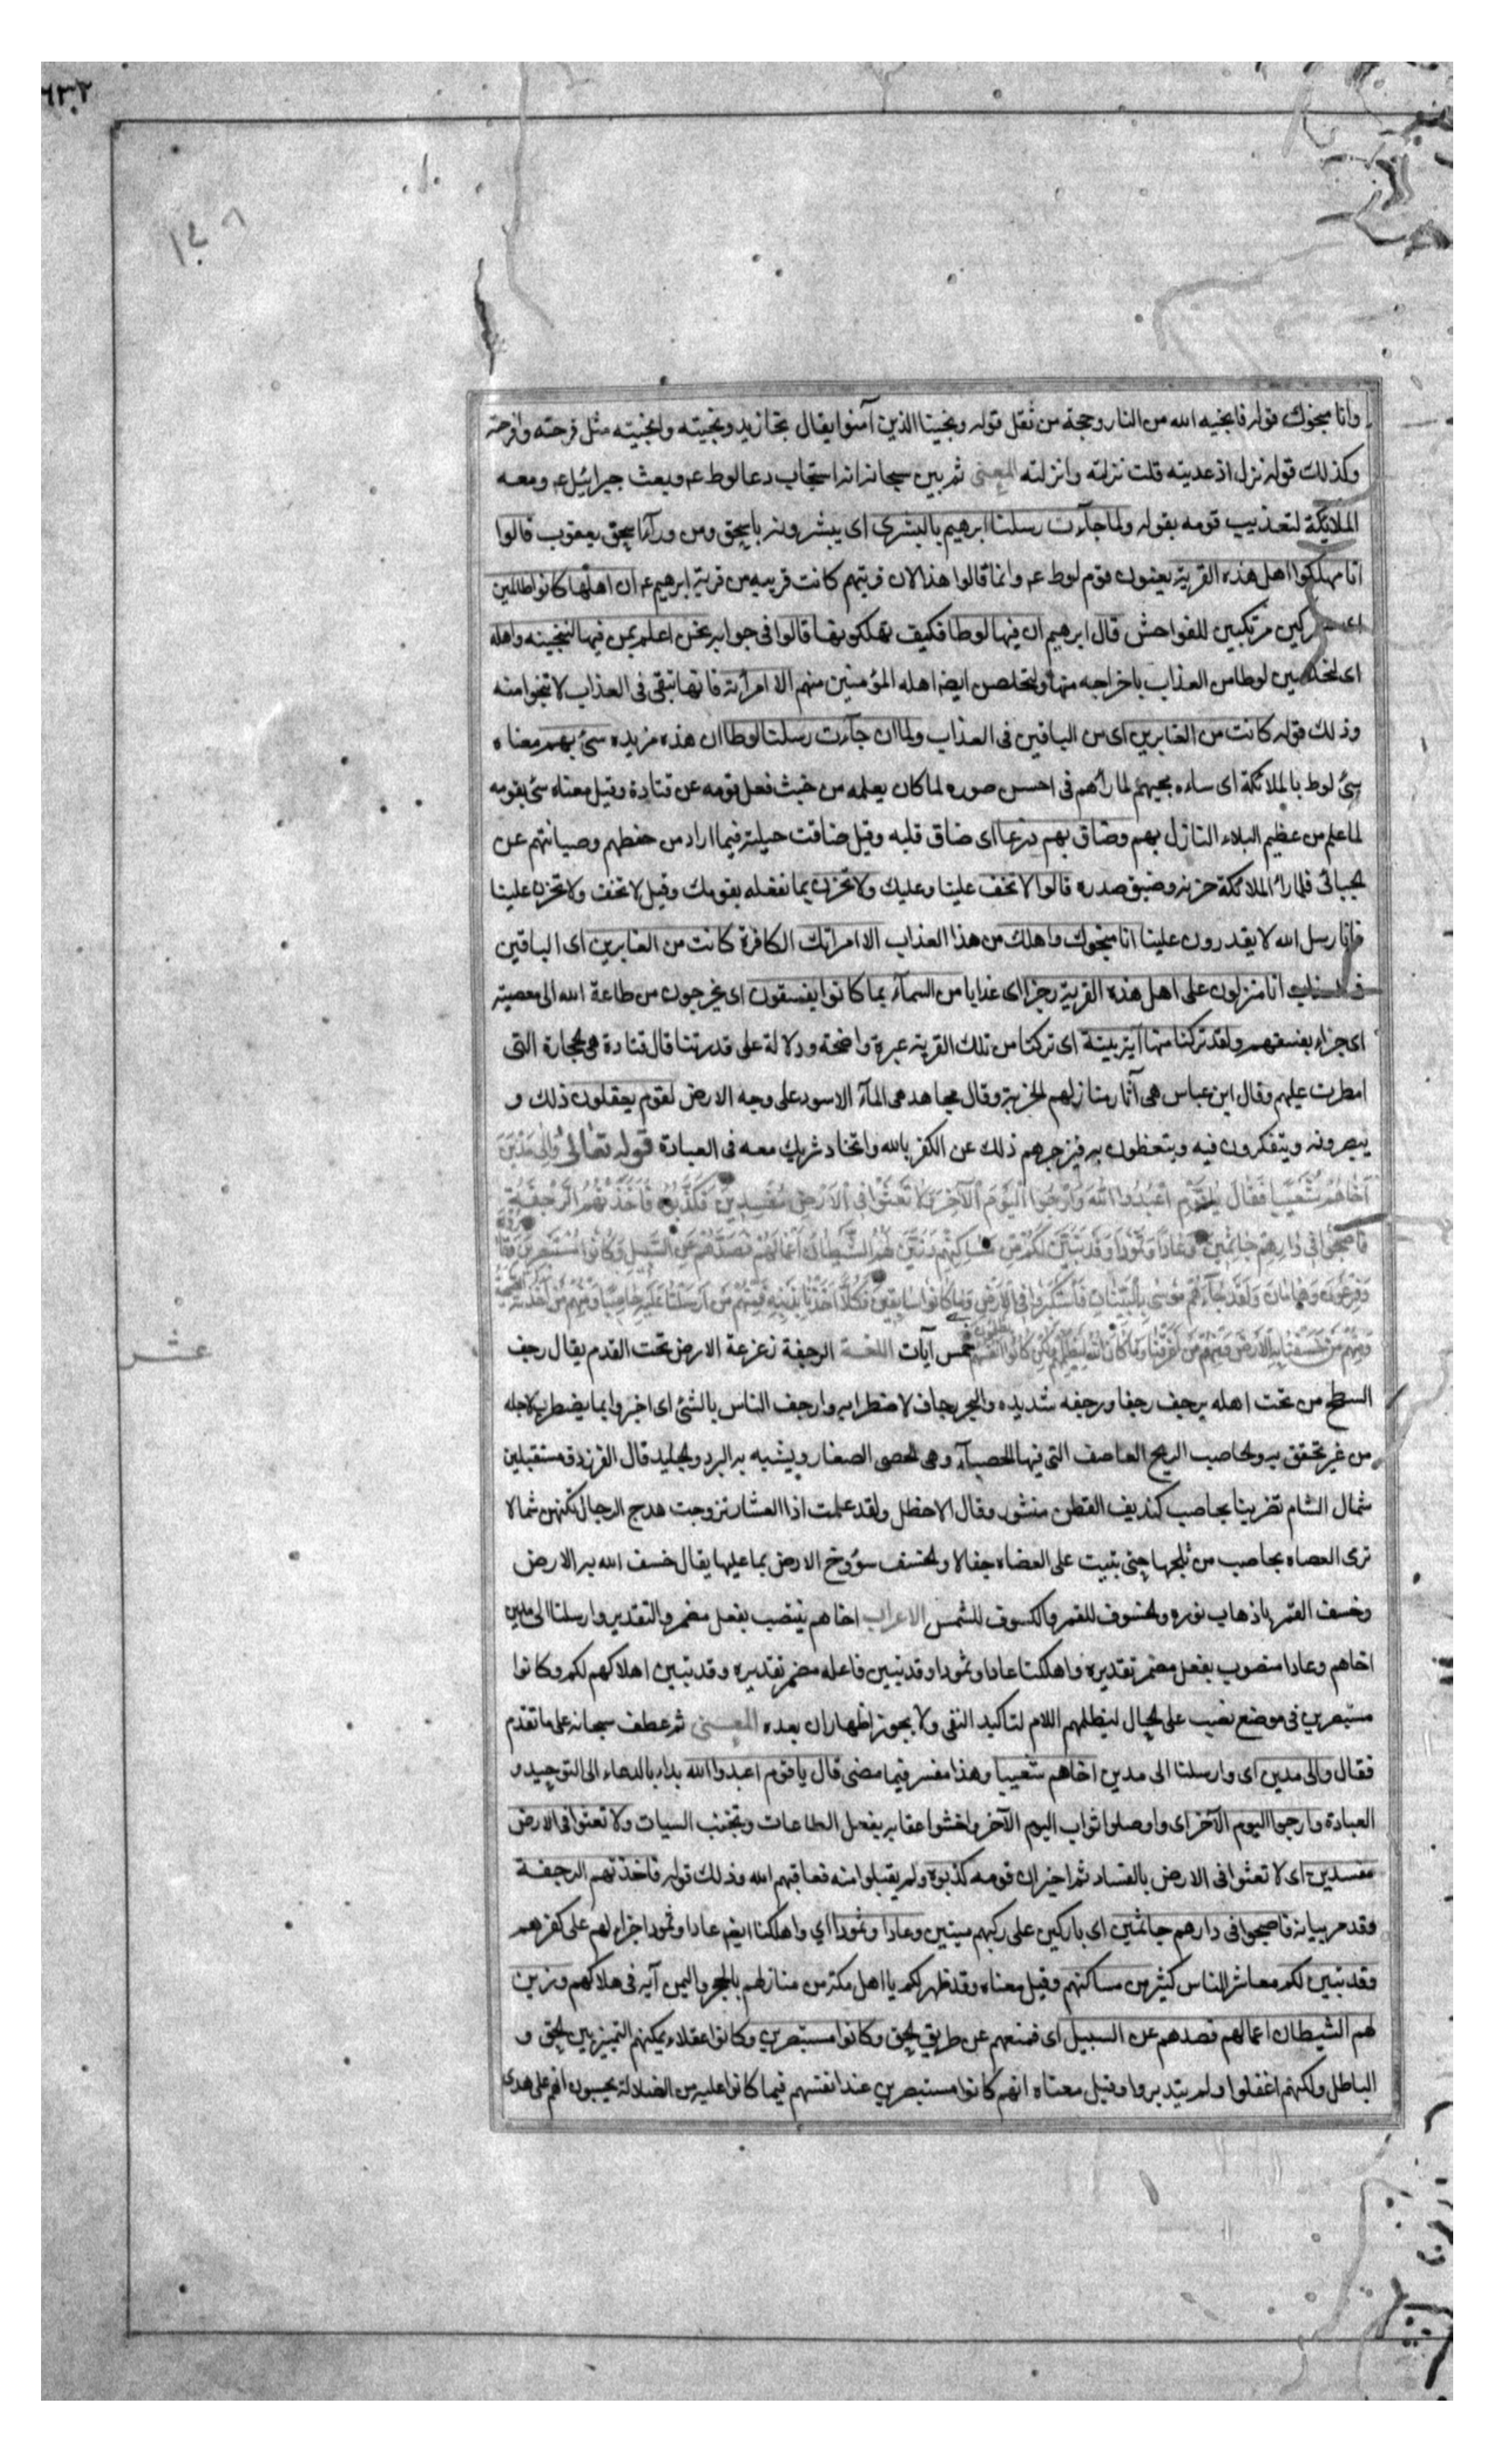 ٦٣٢
وانا منجوك قوله فانجيه الله من النار وحجة من ثقل قوله ونجينا الذين آمنوا يقال نجا زيد ونجيته وانجيته مثل فرحته وافرحته
وكذلك قوله نزل اذ عديته قلت نزلته وانزلته المعنى ثم بين سبحانه انه استجاب دعا لوط عم وبعث جبرائيل عم ومعه
الملائكة لتعذيب قومه بقوله ولما جآءت رسلنا ابرهيم بالبشرى اى يبشرونه باسحق ومن ورآء اسحق يعقوب قالوا
انا مهلكوا اهل هذه القرية يعنون قوم لوط عم وانما قالوا هذا لان قريتهم كانت قريبه من قرية ابرهيم عم ان اهلها كانوا ظالمين
اى مشركين مرتكبين للفواحش قال ابرهيم ان فيها لوطا فكيف تهلكونها قالوا فى جوابه نحن اعلم بمن فيها لننجينه واهله
اى لنخلصين لوطا من العذاب باخراجه منها ولنخلصن ايضا اهله المؤمنين منهم الا امرأته فانها تبقى فى العذاب لا تنجوا منه
وذلك قوله كانت من الغابرين اى من الباقين فى العذاب ولما ان جآءت رسلنا لوطا ان هذه مزيده سئ بهم معناه
سئ لوط بالملائكة اى ساءه مجيهم لما رأهم فى احسن صوره لما كان يعلمه من خبث فعل قومه عن قتادة وقيل معناه سئ بقومه
لما علم من عظيم البلاء النازل بهم وضاق بهم ذرعا اى ضاق قلبه وقيل ضاقت حيلته فيما اراد من حفظهم وصيانتهم عن
الجبائى فلما رأ الملائكة حزنه وضيق صدره قالوا لا تخف علينا وعليك ولا تحزن بما نفعله بقومك وقيل لا تخف ولا تحزن علينا
فانا رسل الله لا يقدرون علينا انا منجوك واهلك من هذا العذاب الا امراتك الكافرة كانت من الغابرين اى الباقين
فى العذاب انا منزلون على اهل هذه القرية رجزا اى عذابا من السمآء بما كانوا يفسقون اى يخرجون من طاعة الله الى معصيته
اى جزاء بفسقهم ولقد تركنا منها آية بينة اى تركنا من تلك القرية عبرة واضحة ودلالة على قدرتنا قال قتادة هى الحجارة التى
امطرت عليهم وقال ابن عباس هى آثار منازلهم الخربة وقال مجاهد هى المآء الاسود على وجه الارض لقوم يعقلون ذلك و
يبصرونه ويتفكرون فيه ويتعظون به فيزجرهم ذلك عن الكفر بالله واتخاد شريك معه فى العبادة قوله تعالى وَاِلى مَدْيَنَ
اَخَاهُمْ شُعَيْبًا فَقَالَ يَا قَوْمِ اعْبُدُوا اللهَ وَارْجُوا الْيَوْمَ الْآخِرَ وَلَا تَعْثَوْا فِى الْاَرْضِ مُفْسِدِينَ فَكَذَّبُوهُ فَاَخَذَتْهُمُ الرَّجْفَةُ
فَاَصْبَحُوا فِى دَارِهِمْ جَاثِمِينَ وَعَادًا وَثَمُودَا وَقَدْ تَبَيَّنَ لَكُمْ مِنْ مَسَاكِنِهِمْ وَزَيَّنَ لَهُمُ الشَّيْطَانُ اَعْمَالَهُمْ فَصَدَّهُمْ عَنِ السَّبِيلِ وَكَانُوا مُسْتَبْصِرِينَ وَقَارُونَ
وَفِرْعَوْنَ وَهَامَانَ وَلَقَدْ جَآءَهُمْ مُوسى بِالْبَيِّنَاتِ فَاسْتَكْبَرُوا فِى الْاَرْضِ وَمَا كَانُوا سَابِقِينَ فَكُلًّا اَخَذْنَا بِذَنْبِهِ فَمِنْهُمْ مَنْ اَرْسَلْنَا عَلَيْهِ حَاصِبًا وَمِنْهُمْ مَنْ اَخَذَتْهُ الصَّيْحَةُ
وَمِنْهُمْ مَنْ خَسَفْنَا بِهِ الْاَرْضَ وَمِنْهُمْ مَنْ اَغْرَقْنَا وَمَا كَانَ اللهُ لِيَظْلِمَهُمْ وَلكِنْ كَانُوا اَنْفُسَهُمْ يَظْلِمُونَ خمس آيات اللغة الرجفة زعزعة الارض تحت القدم يقال رجف
عشر
السطح من تحت اهله يرجف رجفا ورجفه شديده والبحر رجاف لاضطرابه وارجف الناس بالشئ اى اخبروا بما يضطرب لاجله
من غير تحقق به والحاصب الريح العاصف التى فيها الحصبآء وهى الحصى الصغار ويشبه به البرد والجليد قال الفرزدق مستقبلين
شمال الشام تضربنا بحاصب كنديف القطن منثور وقال الاخطل ولقد علمت اذا العشار تزوجت هدج الرجال تكنهن شمالا
ترى العصاه بحاصب من ثلجها حتى يتبيت على العضاه جفالا والخسف سؤوخ الارض بما عليها يقال خسف الله به الارض
وخسف القمر باذهاب نوره والخسوف للقمر والكسوف للشمس الاعراب اخاهم ينتصب بفعل مضمر والتقدير وارسلنا الى مدين
اخاهم وعادا منصوب بفعل مضمر تقديره واهلكنا عادا وثمودا وقد تبين فاعله مضمر تقديره وقد تبين اهلاكهم لكم وكانوا
مستبصرين فى موضع نصب على الحال ليظلمهم اللام لتاكيد النفى ولا يجوز اظهار ان بعده المعنى ثم عطف سبحانه على ما تقدم
فقال والى مدين اى وارسلنا الى مدين اخاهم شعيبا وهذا مفسر فيما مضى قال يا قوم اعبدوا الله بداء بالدعاء الى التوحيد و
العبادة وارجوا اليوم الآخر اى واوصلوا ثواب اليوم الآخر واخشوا عقابه بفعل الطاعات وتجنب السيات ولا تعثوا فى الارض
مفسدين اى لا تعثوا فى الارض بالفساد ثم اخبر ان قومه كذبوه ولم يقبلوا منه فعاقبهم الله وذلك قوله فاخذتهم الرجفة
وقد مر بيانه فاصبحوا فى دارهم جاثمين اى باركين على ركبهم ميتين وعادا وثمودا اي واهلكنا ايضا عادا وثمودا جزاء لهم على كفرهم
وقد تبين لكم معاشر الناس كثير من مساكنهم وقيل معناه وقد ظهر لكم يا اهل مكة من منازلهم بالحجر واليمن آيه فى هلاكهم وزين
لهم الشيطان اعمالهم فصدهم عن السبيل اى فمنعهم عن طريق الحق وكانوا مستبصرين وكانوا عقلاء يمكنهم التمييز بين الحق و
الباطل ولكنهم اغفلوا ولم يتدبروا وقيل معناه انهم كانوا مستبصرين عند انفسهم فيما كانوا عليه من الضلالة يحسبون انهم على هدى